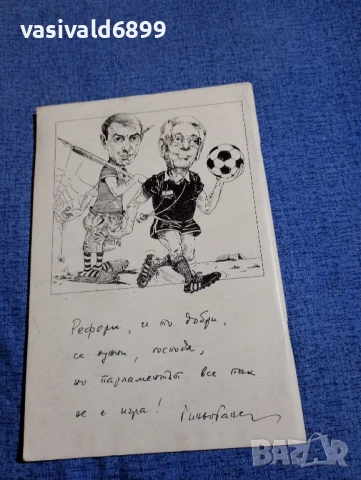 vasivald6899
Рефери, и то добри,
са нужни, господа,
но парламентът все пак
не е игра!
BAZAR
bg